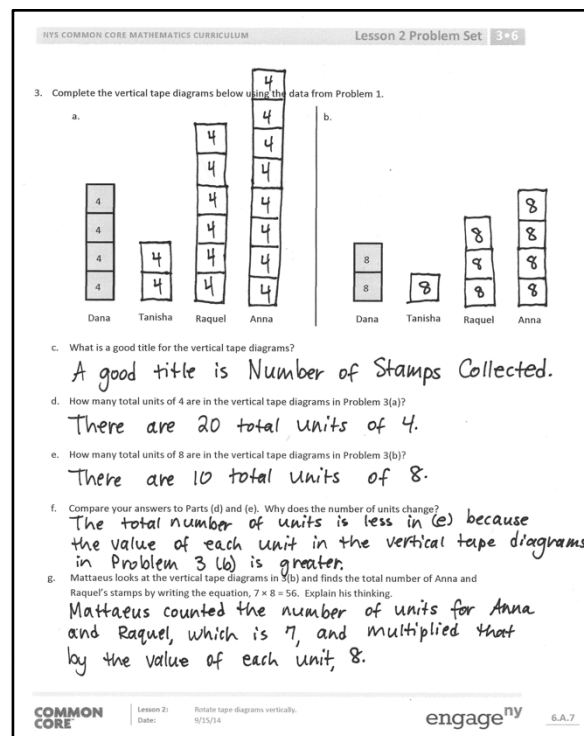 NYS COMMON CORE MATHEMATICS CURRICULUM Lesson 2 Problem Set 3•6
3. Complete the vertical tape diagrams below using the data from Problem 1.
a. b.
4
4
4
4
Dana
4
4
Tanisha
4
4
4
4
4
4
Raquel
4
4
4
4
4
4
4
4
Anna
8
8
Dana
8
Tanisha
8
8
8
Raquel
8
8
8
8
Anna
c. What is a good title for the vertical tape diagrams?
A good title is Number of Stamps Collected.
d. How many total units of 4 are in the vertical tape diagrams in Problem 3(a)?
There are 20 total units of 4.
e. How many total units of 8 are in the vertical tape diagrams in Problem 3(b)?
There are 10 total units of 8.
f. Compare your answers to Parts (d) and (e). Why does the number of units change?
The total number of units is less in (e) because
the value of each unit in the vertical tape diagrams
in Problem 3 (b) is greater.
g. Mattaeus looks at the vertical tape diagrams in 3(b) and finds the total number of Anna and
Raquel's stamps by writing the equation, 7 × 8 = 56. Explain his thinking.
Mattaeus counted the number of units for Anna
and Raquel, which is 7, and multiplied that
by the value of each unit, 8.
COMMON CORE
Lesson 2: Rotate tape diagrams vertically.
Date: 9/15/14
engageny
6.A.7